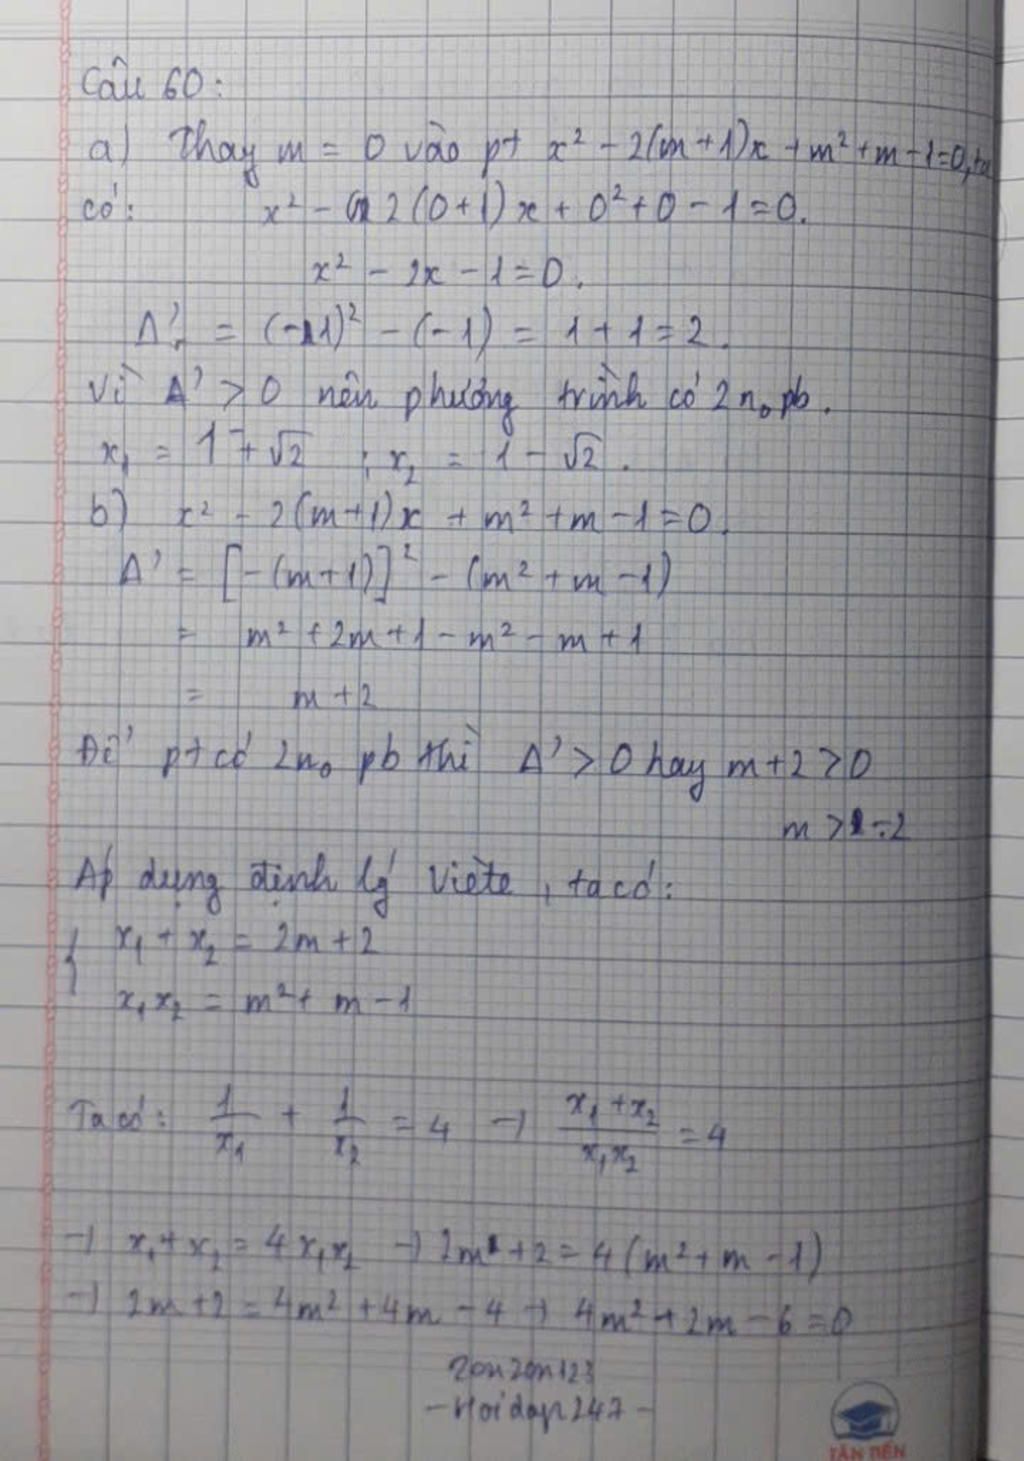 Câu 60:
a) Thay m = 0 vào pt x² - 2(m+1)x + m² + m - 1 = 0, ta
có: x² - 2(0+1)x + 0² + 0 - 1 = 0.
x² - 2x - 1 = 0.
Δ' = (-1)² - (-1) = 1 + 1 = 2.
Vì Δ' > 0 nên phương trình có 2 n₀ pb.
x₁ = 1 + √2 ; x₂ = 1 - √2.
b) x² - 2(m+1)x + m² + m - 1 = 0.
Δ' = [-(m+1)]² - (m² + m - 1)
= m² + 2m + 1 - m² - m + 1
= m + 2
Để pt có 2 n₀ pb thì Δ' > 0 hay m + 2 > 0
m > -2
Áp dụng định lý Viète, ta có:
{ x₁ + x₂ = 2m + 2
x₁x₂ = m² + m - 1
Ta có: 1/x₁ + 1/x₂ = 4 → (x₁ + x₂)/(x₁x₂) = 4
→ x₁ + x₂ = 4x₁x₂ → 2m + 2 = 4(m² + m - 1)
→ 2m + 2 = 4m² + 4m - 4 → 4m² + 2m - 6 = 0
zonzon123
- Hoidap247 -
TÂN TIẾN